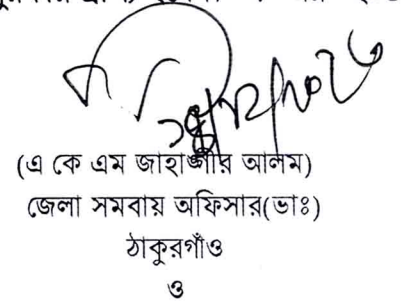 (এ কে এম জাহাঙ্গীর আলম)
জেলা সমবায় অফিসার(ভাঃ)
ঠাকুরগাঁও
ও